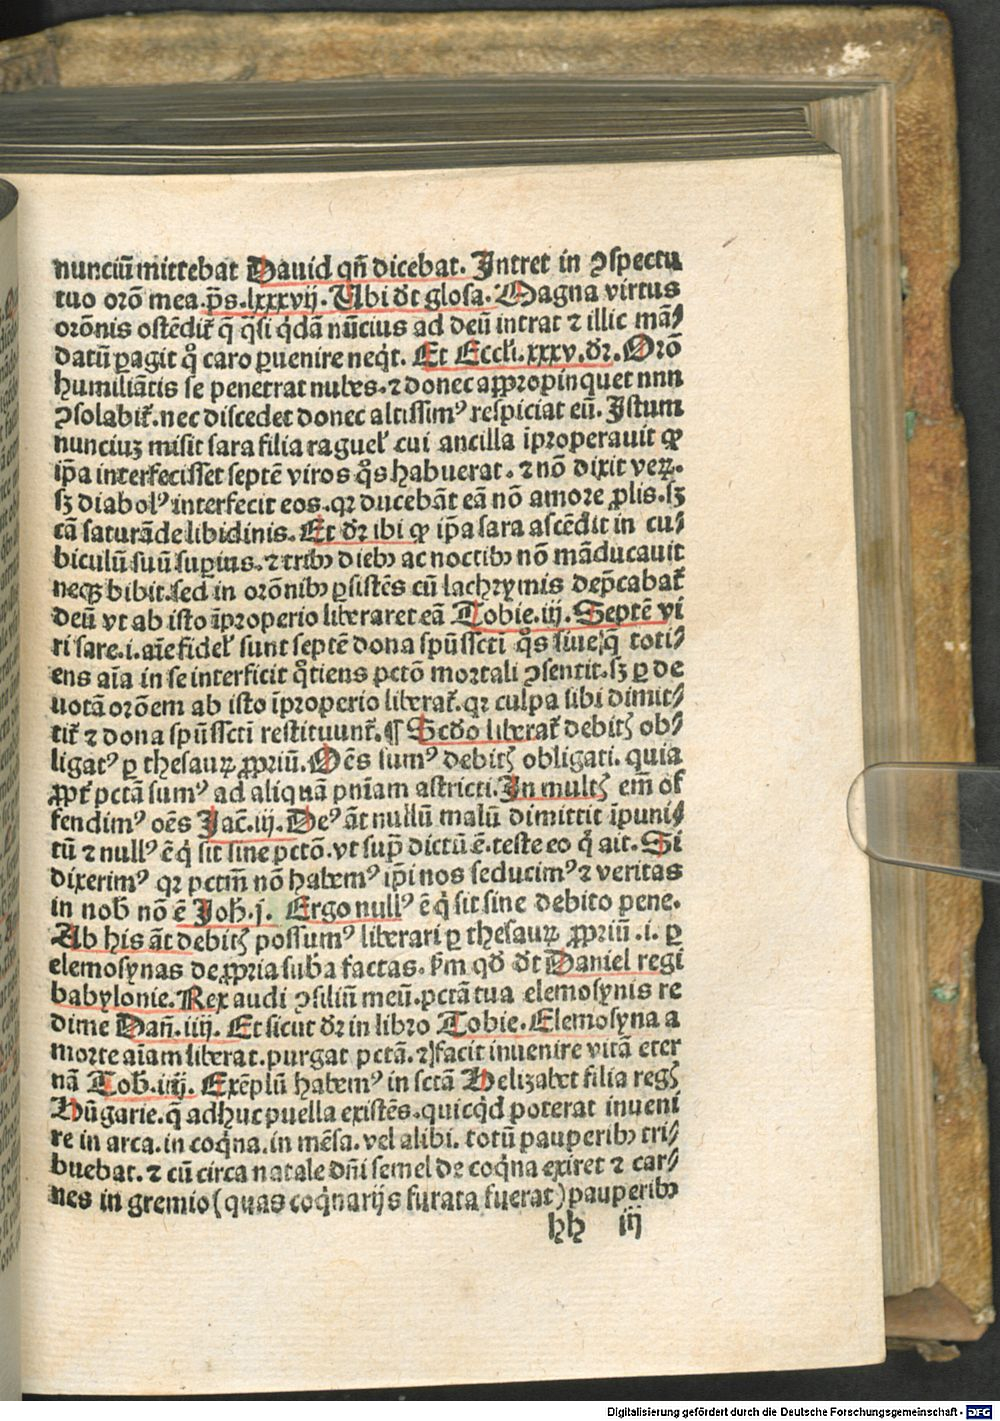 nunciū mittebat Dauid qñ dicebat. Intret in ꝯspectu
tuo orō mea. p̄s. lxxxvij. Ubi dt̄ glosa. Magna virtus
orōnis ostēdit᷑ q̄ q̄si q̇dā nūcius ad deū intrat ⁊ illic mā⸗
datū ꝑagit qͦ caro ꝑuenire neq̇t. Et Eccl̓i. xxxv. dr̄. Orō
humiliātis se penetrat nubes. ⁊ donec appropinquet nnn
ꝯsolabit᷑. nec discedet donec altissimꝰ respiciat eū. Istum
nunciuꝫ misit sara filia raguel̓ cui ancilla īproperauit ꝙ
ip̄a interfecisset septē viros qͦs habuerat. ⁊ nō dixit veꝝ.
sꝫ diabolꝰ interfecit eos. qꝛ ducebāt eā nō amore ꝓlis. sꝫ
cā saturāde libidinis. Et dr̄ ibi ꝙ ip̄a sara ascēdit in cu⸗
biculū suū suꝑius. ⁊ tribꝫ diebꝫ ac noctibꝫ nō māducauit
neqꝫ bibit. sed in orōnibꝫ ꝑsistēs cū lachrymis dep̄cabat᷑
deū vt ab isto īproperio liberaret eā Tobie. iij. Septē vi
ri sare. i. aīe fidel̓ sunt septē dona spūssctī qͦs siue q̄ toti⸗
ens aīa in se interficit qͦtiens pctō mortali ꝯsentit. sꝫ ꝑ de
uotā orōem ab isto īproperio liberat᷑. qꝛ culpa sibi dimit⸗
tit᷑ ⁊ dona spūssctī restituunt᷑. ¶ Scd̄o liberat᷑ debitꝭ ob⸗
ligatꝰ ꝑ thesauꝝ ꝓpriū. Oēs sumꝰ debitꝭ obligati. quia
ꝓpt᷑ pctā sumꝰ ad aliquā pn̄iam astricti. In multꝭ em̄ of
fendimꝰ oēs Jac̄. iij. Deꝰ āt nullū malū dimittit īpuni⸗
tū ⁊ nullꝰ ē q̇ sit sine pctō. vt sup̄ dictū ē. teste eo q̇ ait. Si
dixerimꝰ qꝛ pctm̄ nō habemꝰ ip̄i nos seducimꝰ ⁊ veritas
in nob̄ nō ē Joh̄. j. Ergo nullꝰ ē q̇ sit sine debito pene.
Ab his āt debitꝭ possumꝰ liberari ꝑ thesauꝝ ꝓpriū. i. ꝑ
elemosynas de ꝓpria sub̄a factas. km̄ qd̄ dt̄ Daniel regi
babylonie. Rex audi ꝯsiliū meū. pctā tua elemosynis re
dime Dan̄. iiij. Et sicut dr̄ in libro Tobie. Elemosyna a
morte aīam liberat. purgat pctā. ⁊ facit inuenire vitā eter
nā Tob̄. iiij. Exēplū habemꝰ in sctā Helizabet filia regꝭ
Hūgarie. q̄ adhuc puella existēs. quicq̇d poterat inueni
re in arca. in coq̇na. in mēsa. vel alibi. totū pauperibꝫ tri⸗
buebat. ⁊ cū circa natale dn̄i semel de coq̇na exiret ⁊ car⸗
nes in gremio (quas coq̇narijs furata fuerat) pauperibꝫ
hh iij
Digitalisierung gefördert durch die Deutsche Forschungsgemeinschaft - DFG